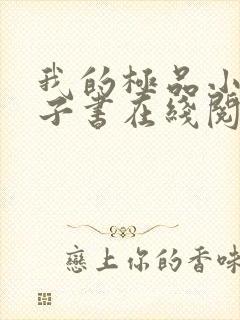 我的極品小
子書在綫閱
戀上你的香味